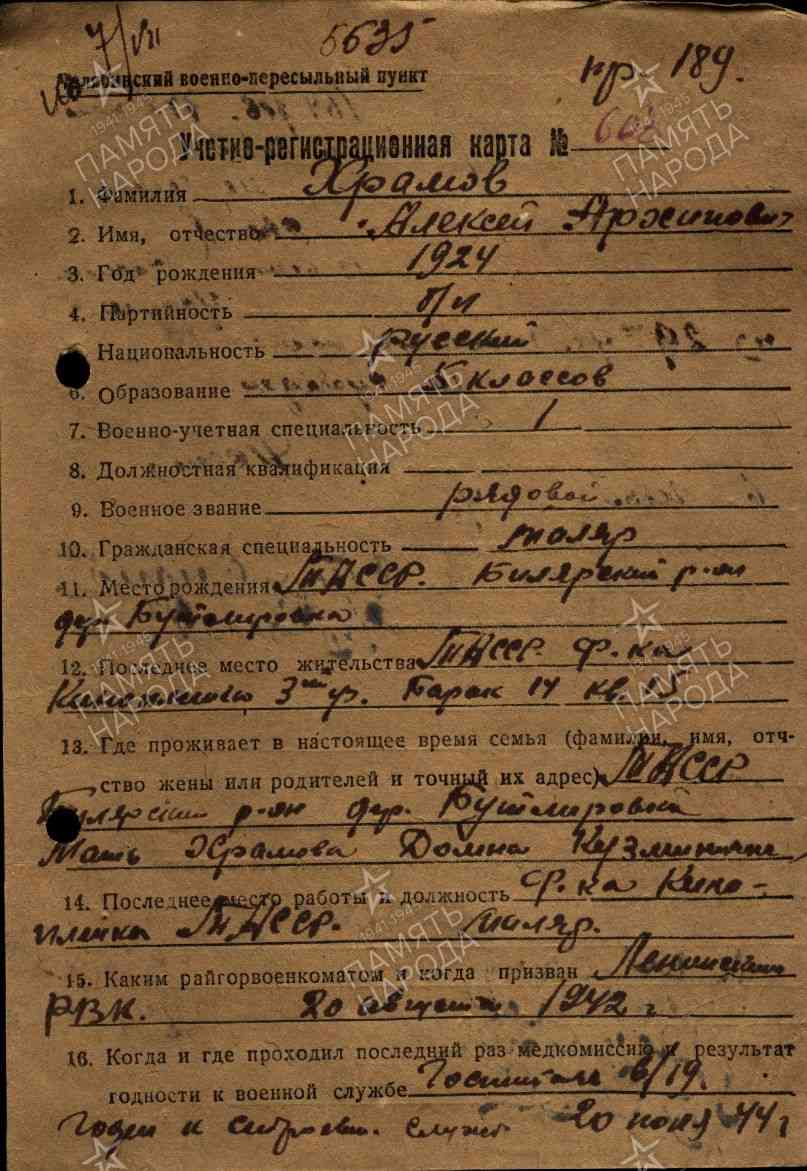 7/VII 5635
пр. 189.
военно-пересыльный пункт
Учетно-регистрационная карта №
1. Фамилия Храмов
2. Имя, отчество Алексей Архипович
3. Год рождения 1924
4. Партийность б/п
Национальность русский
6. Образование 5 классов
7. Военно-учетная специальность 1
8. Должностная квалификация
9. Военное звание рядовой
10. Гражданская специальность маляр
11. Место рождения ТАССР. Билярский р-он
дер. Бутлировка
12. Последнее место жительства ТАССР. Ф-ка
Кинопленка 3 Барак 14 кв. 15
13. Где проживает в настоящее время семья (фамилии, имя, отч-
ство жены или родителей и точный их адрес) ТАССР
Билярский р-он дер. Бутлировка
Мать Храмова Домна
14. Последнее место работы и должность Ф-ка Кино-
пленка ТАССР. маляр.
15. Каким райгорвоенкоматом и когда призван Ленинским
РВК. 20 августа 1942 г
16. Когда и где проходил последний раз медкомиссию и результат
годности к военной службе Госпиталь
Годен к строевой. службе 20 июня 44 г
ПАМЯТЬ НАРОДА
1941-1945
ПАМЯТЬ НАРОДА
1941-1945
ПАМЯТЬ НАРОДА
1941-1945
ПАМЯТЬ НАРОДА
1941-1945
ПАМЯТЬ НАРОДА
1941-1945
ПАМЯТЬ НАРОДА
1941-1945